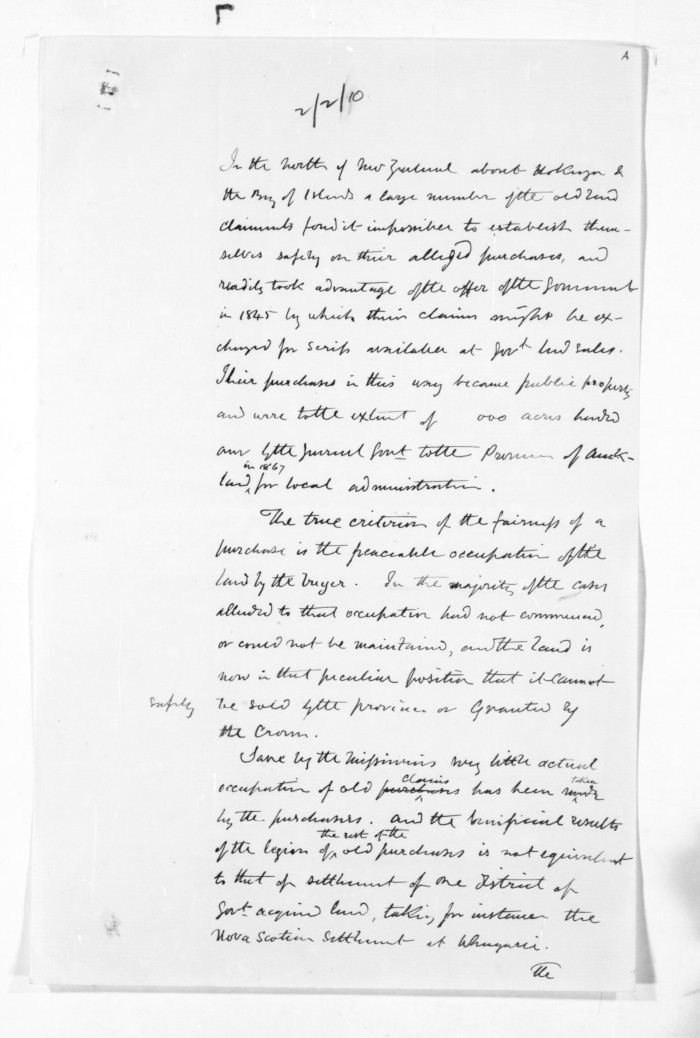 A
2/2/10
In the North of New Zealand about Hokianga &
the Bay of Islands a large number of the old land
claimants found it impossible to establish them-
selves safely on their alleged purchases, and
readily took advantage of the offer of the Government
in 1845 by which their claims might be ex-
changed for scrip available at Govt land sales.
Their purchases in this way became public property
and were to the extent of 000 acres handed
over by the General Govt to the Province of Auck-
in 1867
land, for local administration.
The true criterion of the fairness of a
purchase is the peaceable occupation of the
land by the buyer. In the majority of the cases
alluded to that occupation had not commenced,
or could not be maintained, and the land is
now in that peculiar position that it cannot
safely
be sold by the province or Granted by
the Crown.
Save by the Missionaries very little actual
claims taken
occupation of old purchases has been made
by the purchasers. And the beneficial results
the rest of the
of the legion of old purchases is not equivalent
to that of settlement of one district of
Govt acquired land, taking for instance the
Nova Scotian Settlement at Whangarei.
The